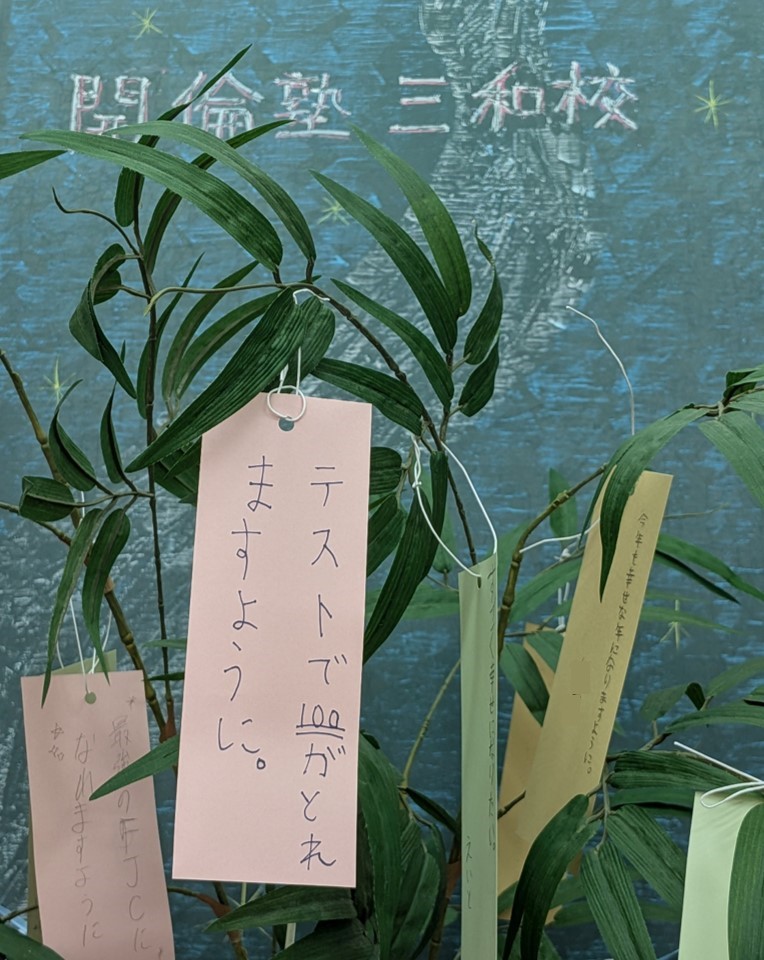 開倫塾 三和校
テストで100がとれ
ますように。
今年も幸せな年になりますように。
最強のFJCに
なれますように